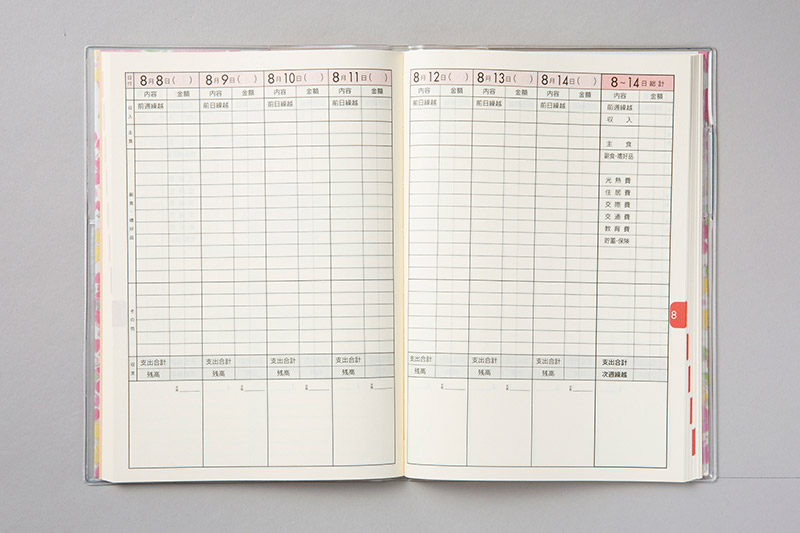 日付 8月8日( ) 8月9日( ) 8月10日( ) 8月11日( ) 8月12日( ) 8月13日( ) 8月14日( ) 8〜14日総計
内容 金額 内容 金額 内容 金額 内容 金額 内容 金額 内容 金額 内容 金額 内容 金額
収入 前週繰越 前日繰越 前日繰越 前日繰越 前日繰越 前日繰越 前日繰越 前週繰越
収入
主食
主食
副食・嗜好品
副食・嗜好品
光熱費
住居費
交際費
交通費
教育費
貯蓄・保険
その他
8
支出合計 支出合計 支出合計 支出合計 支出合計 支出合計 支出合計 支出合計
残高 残高 残高 残高 残高 残高 残高 次週繰越